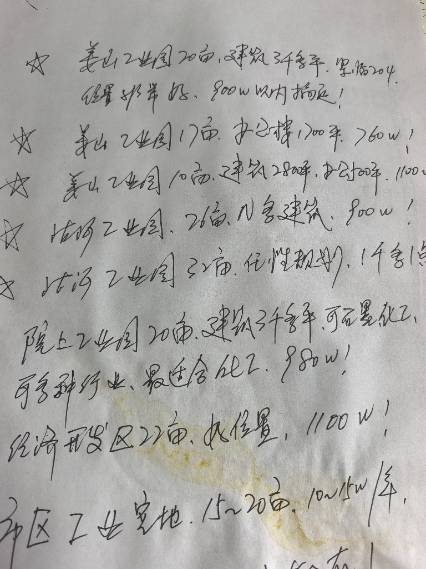 ☆ 姜山工业园20亩,建筑3千多平.紧临204.
位置非常好、900w以内搞定!
☆ 姜山工业园17亩.办公楼1200平.760w!
☆ 姜山工业园10亩.建筑2800平,办公500平.1100w
☆ 沽河工业园.26亩.N多建筑.900w!
☆ 沽河工业园32亩.任性规划.1千多1点
院上工业园20亩.建筑3千多平.可石墨化工、
可多种行业、最适合化工.980w!
经济开发区22亩.好位置.1100w!
市区工业宝地.15~20亩.10~15w/年.